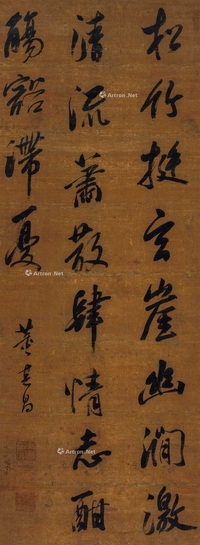 松竹挺玄崖幽澗激
清流蕭散肆情志酣
觴豁滯憂
董其昌
Artron.Net
Artron.Net
Artron.Net
Artron.Net